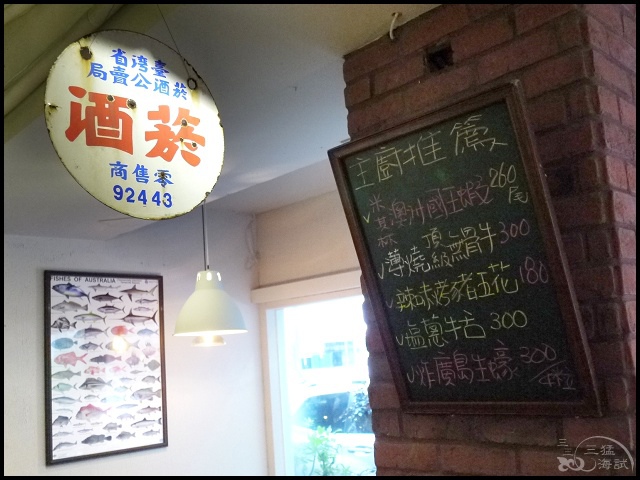 臺灣省
菸酒公賣局
菸酒
零售商
92443
FISHES OF AUSTRALIA
主廚推薦
米其林澳洲國王蝦 260尾
薄燒頂級無骨牛 300
辣味烤豬五花 180
鹽蔥牛舌 300
炸廣島生蠔 300/4粒
三猛
海試